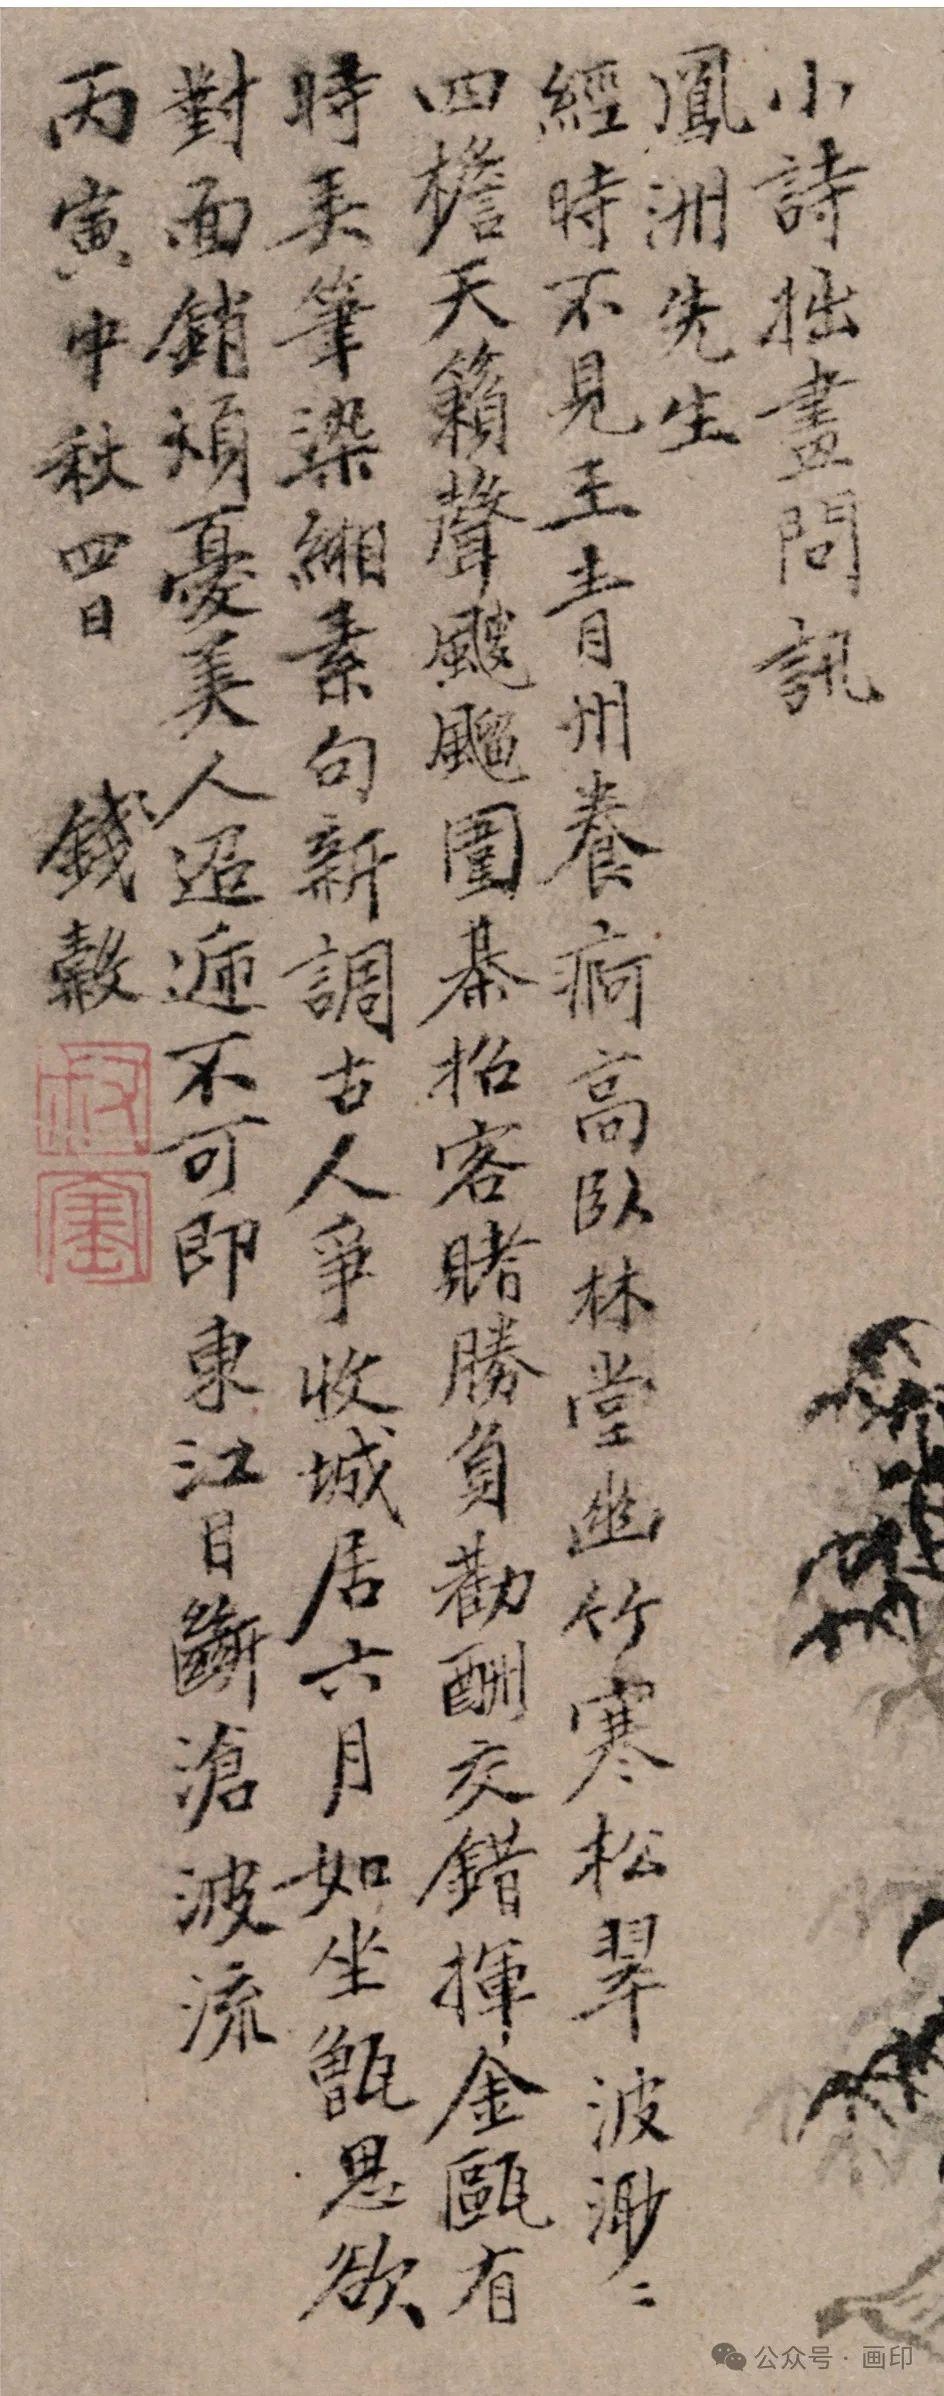 小詩拙畫問訊
鳳洲先生
經時不見王青州養痾高臥林堂幽竹寒松翠波渺〻
四檐天籟聲颼飀圍棊招客賭勝負勸酬交錯揮金甌有
時弄筆染緗素句新調古人爭收城居六月如坐甑思欲
對面銷煩憂美人迢遞不可即東江目斷滄波流
丙寅中秋四日 錢穀
叔寶
公众号·画印